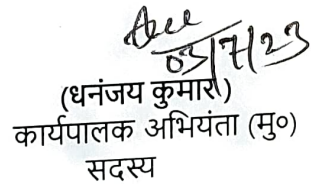 03/7/23
(धनंजय कुमार)
कार्यपालक अभियंता (मु०)
सदस्य